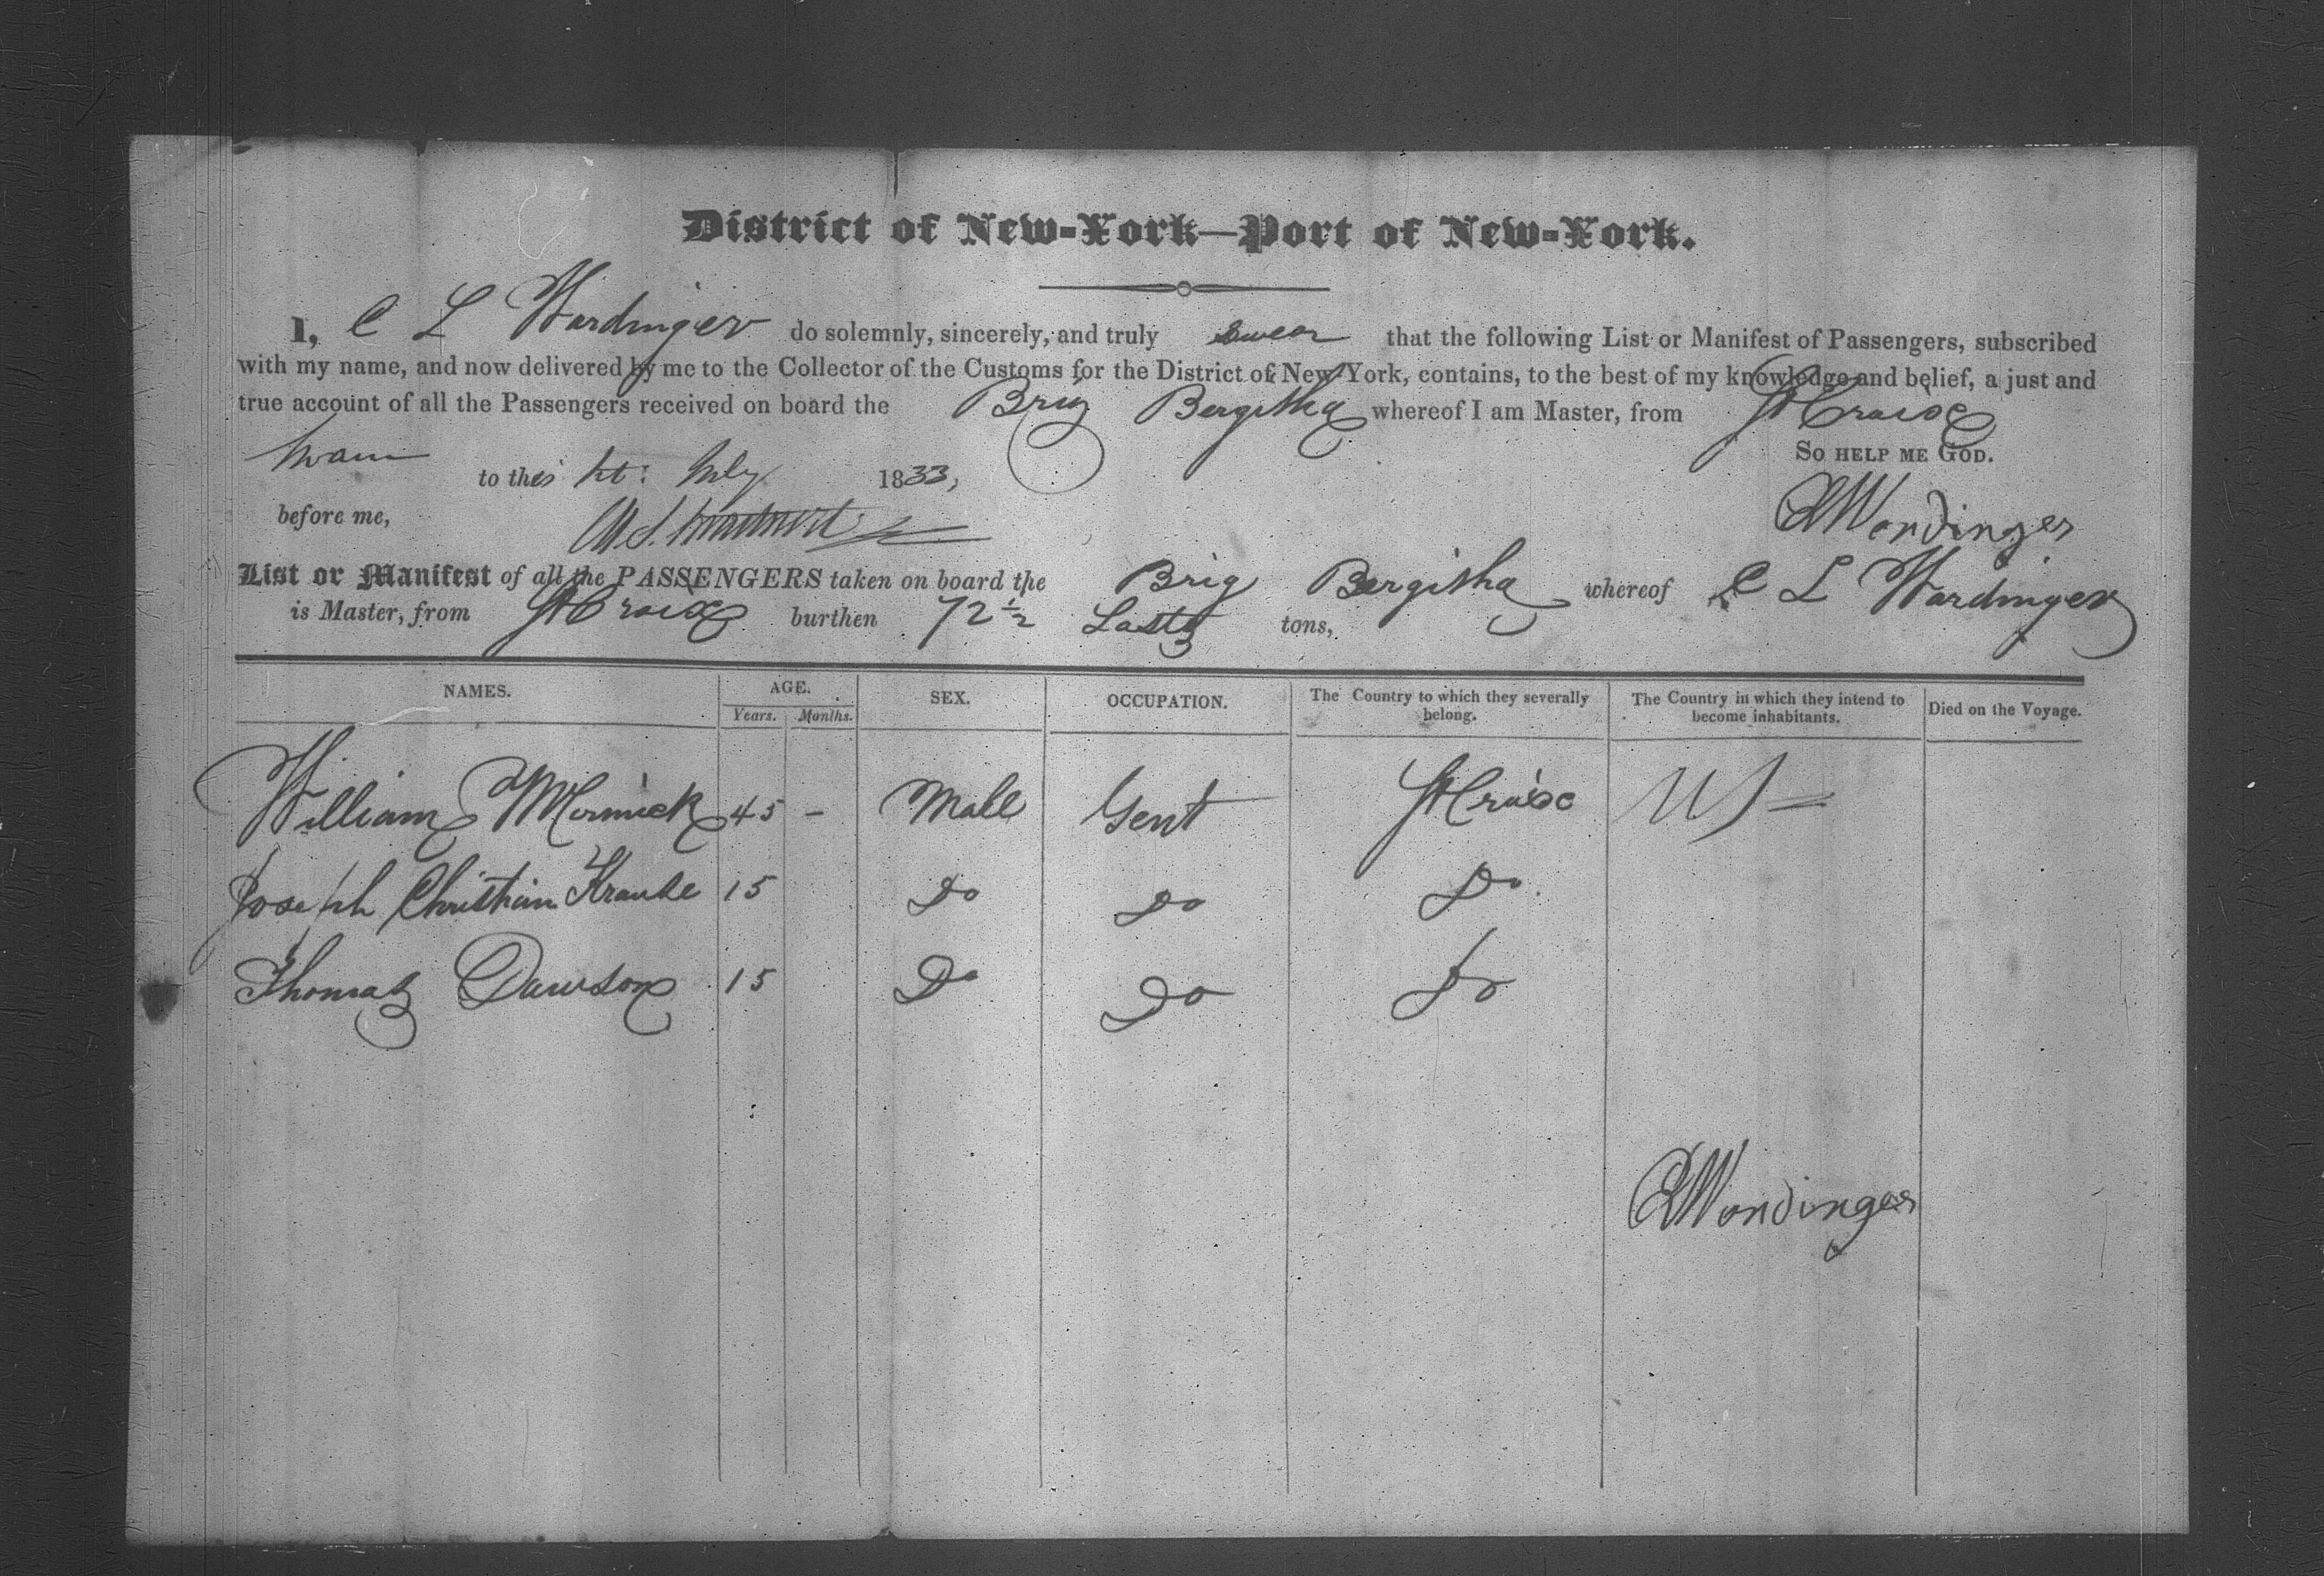 District of New-York—Port of New-York.
I, C L Wardinger do solemnly, sincerely, and truly swear that the following List or Manifest of Passengers, subscribed
with my name, and now delivered by me to the Collector of the Customs for the District of New York, contains, to the best of my knowledge and belief, a just and
true account of all the Passengers received on board the Brig Bergitha whereof I am Master, from St Croix
So help me God.
Sworn to this 1st: July 1833,
before me,
CLWardinger
List or Manifest of all the PASSENGERS taken on board the Brig Bergitha whereof C L Wardinger
is Master, from St Croix burthen 72 1/2 Lasts tons,
NAMES. AGE. SEX. OCCUPATION. The Country to which they severally belong. The Country in which they intend to become inhabitants. Died on the Voyage.
Years. Months.
William McCormick 45 - Male Gent St Croix US
Joseph Christian Krause 15 Do Do Do
Thomas Dawson 15 Do Do Do
CLWardinger